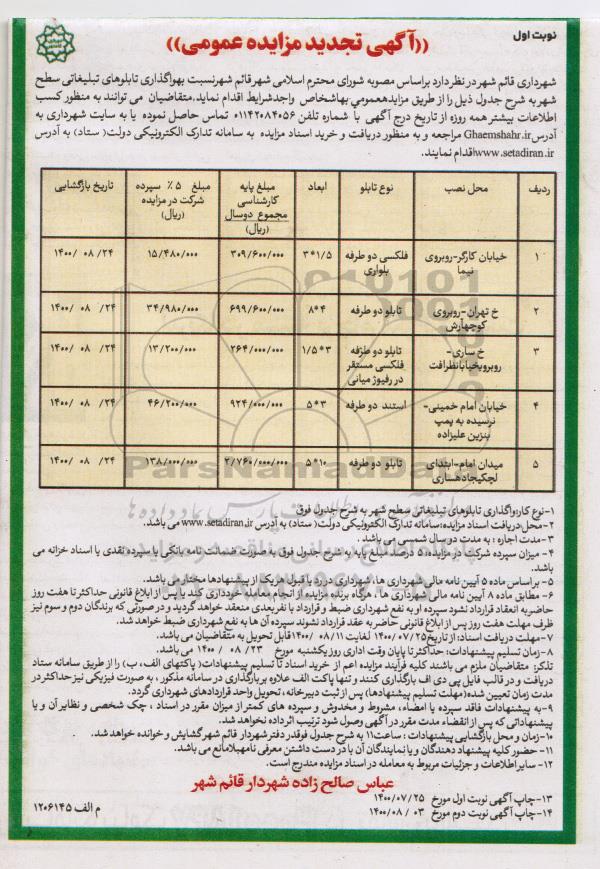 نوبت اول
((آگهی تجدید مزایده عمومی))
شهرداری قائم شهر در نظر دارد براساس مصوبه شورای محترم اسلامی شهر قائم شهر نسبت بهواگذاری تابلوهای تبلیغاتی سطح
شهر به شرح جدول ذیل را از طریق مزایدهعمومی بهاشخاص واجدشرایط اقدام نماید،متقاضیان می توانند به منظور کسب
اطلاعات بیشتر همه روزه از تاریخ درج آگهی با شماره تلفن ۰۱۱۴۲۰۸۴۰۵۶ تماس حاصل نموده یا به سایت شهرداری به
آدرس Ghaemshahr.ir مراجعه و به منظور دریافت و خرید اسناد مزایده به سامانه تدارک الکترونیکی دولت( ستاد) به آدرس
www.setadiran.ir اقدام نمایند.
ردیف محل نصب نوع تابلو ابعاد مبلغ پایه کارشناسی مجموع دوسال (ریال) مبلغ ۵٪ سپرده شرکت در مزایده (ریال) تاریخ بازگشایی
۱ خیابان کارگر-روبروی نیما فلکسی دو طرفه بلواری ۳*۱/۵ ۳۰۹/۶۰۰/۰۰۰ ۱۵/۴۸۰/۰۰۰ ۱۴۰۰/ ۰۸ /۲۴
۲ خ تهران-روبروی کوچهآرش تابلو دو طرفه ۸*۴ ۶۹۹/۶۰۰/۰۰۰ ۳۴/۹۸۰/۰۰۰ ۱۴۰۰/ ۰۸ /۲۴
۳ خ ساری- روبرویخیابانظرافت تابلو دو طرفه فلکسی مستقر در رفیوژ میانی ۱/۵*۳ ۲۶۴/۰۰۰/۰۰۰ ۱۳/۲۰۰/۰۰۰ ۱۴۰۰/ ۰۸ /۲۴
۴ خیابان امام خمینی- نرسیده به پمپ بنزین علیزاده استند دو طرفه ۵*۳ ۹۲۴/۰۰۰/۰۰۰ ۴۶/۲۰۰/۰۰۰ ۱۴۰۰/ ۰۸ /۲۴
۵ میدان امام-ابتدای لچکیجادهساری تابلو دو طرفه ۵*۱۰ ۲/۷۶۰/۰۰۰/۰۰۰ ۱۳۸/۰۰۰/۰۰۰ ۱۴۰۰/ ۰۸ /۲۴
۱-نوع کار:واگذاری تابلوهای تبلیغاتی سطح شهر به شرح جدول فوق
۲-محل دریافت اسناد مزایده:سامانه تدارک الکترونیکی دولت( ستاد) به آدرس www.setadiran.ir می باشد.
۳-مدت اجاره : به مدت دو سال شمسی می باشد.
۴- میزان سپرده شرکت در مزایده ۵ درصد مبلغ پایه به شرح جدول فوق به صورت ضمانت نامه بانکی یا سپرده نقدی یا اسناد خزانه می
باشد.
۵- بر اساس ماده ۵ آیین نامه مالی شهرداری ها، شهرداری در رد یا قبول هر یک از پیشنهادها مختار می باشد.
۶- مطابق ماده ۸ آیین نامه مالی شهرداری ها ، هرگاه برنده مزایده از انجام معامله خودداری کند یا پس از ابلاغ قانونی حداکثر تا هفت روز
حاضر به انعقاد قرارداد نشود سپرده او به نفع شهرداری ضبط و قرارداد با نفر بعدی منعقد خواهد گردید و در صورتی که برندگان دوم و سوم نیز
ظرف مهلت هفت روز پس از ابلاغ قانونی حاضر به عقد قرارداد نشوند سپرده آن ها به نفع شهرداری ضبط خواهد شد.
۷-مهلت دریافت اسناد: از تاریخ۱۴۰۰/۰۷/۲۵ لغایت ۱۴۰۰/ ۰۸/۱۱قابل تحویل به متقاضیان می باشد.
۸-زمان تسلیم پیشنهادات: حداکثر تا پایان وقت اداری روز یکشنبه مورخ ۱۴۰۰ / ۰۸ / ۲۳ می باشد.
تذکر: متقاضیان ملزم می باشند کلیه فرآیند مزایده اعم از خرید اسناد تا تسلیم پیشنهادات( پاکتهای الف، ب) را از طریق سامانه ستاد
دریافت و در قالب فایل پی دی اف بارگذاری کنند و تنها پاکت الف علاوه بر بارگذاری در سامانه مذکور ، به صورت فیزیکی نیز حداکثر در
مدت زمان تعیین شده(مهلت تسلیم پیشنهادها) پس از ثبت دبیرخانه ، تحویل واحد قراردادهای شهرداری گردد.
۹-به پیشنهادات فاقد سپرده یا امضاء، مشروط و مخدوش و سپرده های کمتر از میزان مقرر در اسناد ، چک شخصی و نظایر آن و یا
پیشنهاداتی که پس از انقضاء مدت مقرر در آگهی وصول شود ترتیب اثر داده نخواهد شد.
۱۰-زمان و محل بازگشایی پیشنهادات : ساعت ۱۱ به شرح جدول فوقدر دفتر شهردار قائم شهر گشایش و خوانده خواهد شد.
۱۱-حضور کلیه پیشنهاد دهندگان و یا نمایندگان آن با در دست داشتن معرفی نامهبلامانع می باشد.
۱۲- سایر اطلاعات و جزئیات مربوط به معامله در اسناد مزایده مندرج است.
عباس صالح زاده شهردار قائم شهر
۱۳-چاپ آگهی نوبت اول مورخ ۱۴۰۰/۰۷/۲۵
۱۴-چاپ آگهی نوبت دوم مورخ ۱۴۰۰/۰۸/ ۰۳
م الف ۱۲۰۶۱۴۵
ParsNamadData